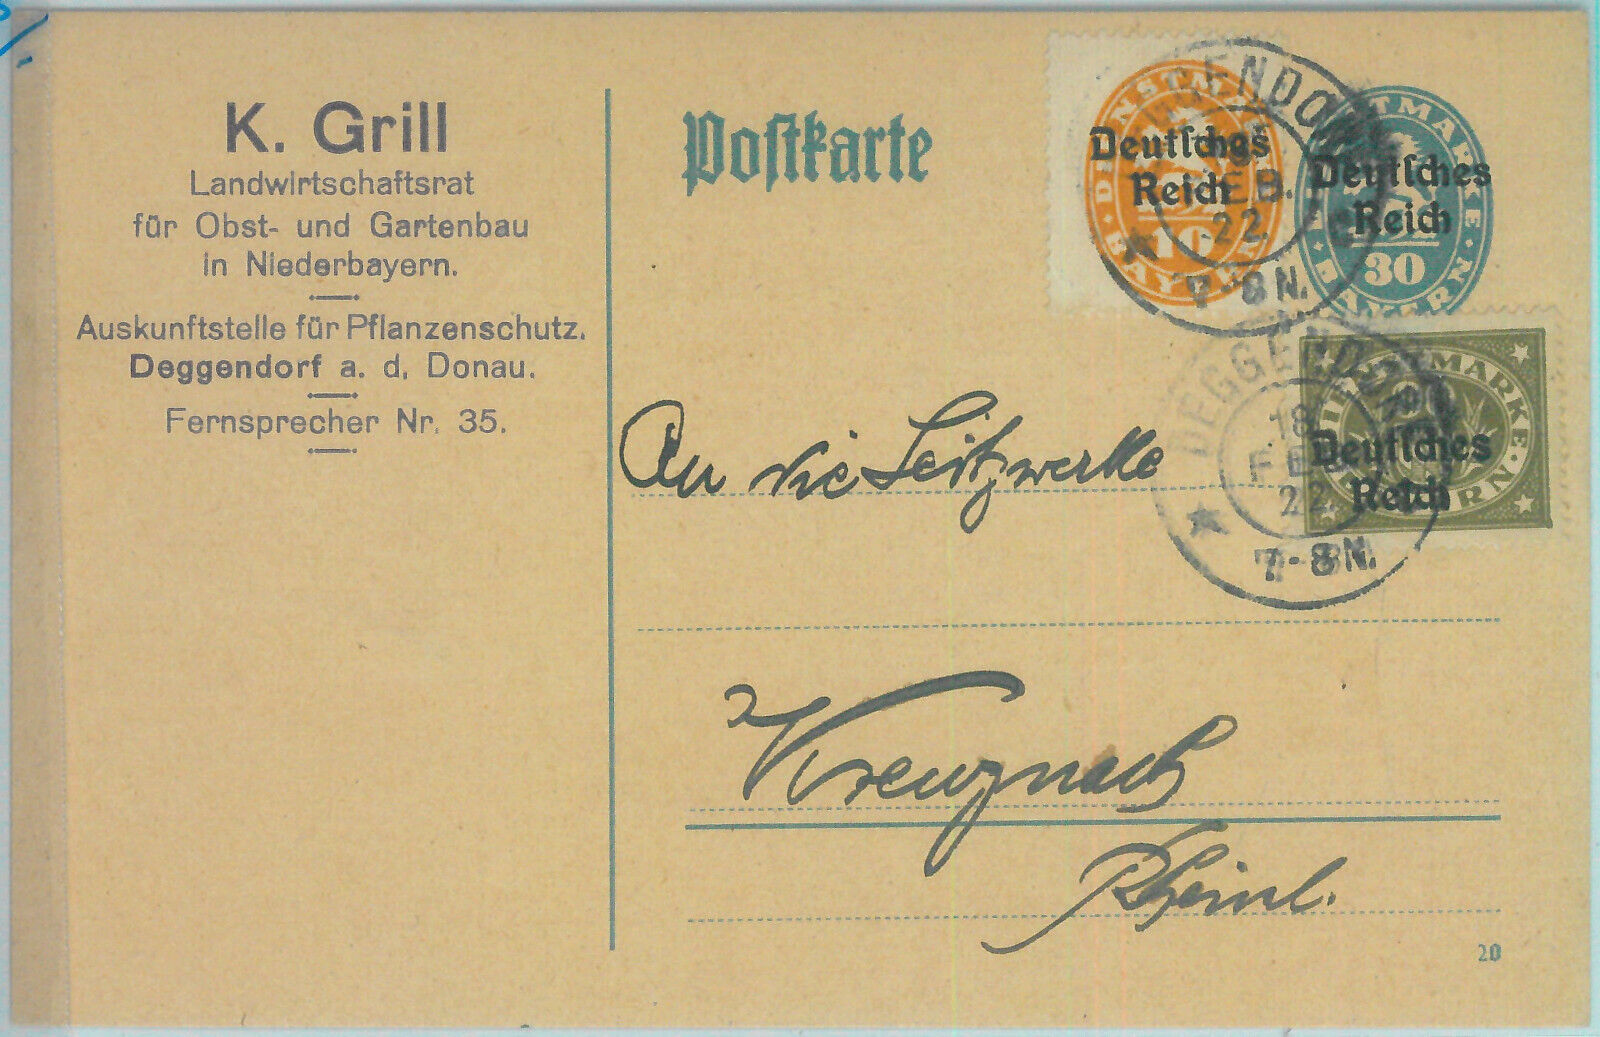 K. Grill
Landwirtschaftsrat
für Obst- und Gartenbau
in Niederbayern.
Auskunftstelle für Pflanzenschutz.
Deggendorf a. d. Donau.
Fernsprecher Nr. 35.
Postkarte
DIENSTMARKE
Deutsches
Reich
10
BAYERN
DIENSTMARKE
Deutsches
Reich
30
BAYERN
DEGGENDORF
FEB.
22.
7-8N.
DIENSTMARKE
Deutsches
Reich
BAYERN
DEGGENDORF
18
FEB.
22.
7-8N.
An die Seitzwerke
Kreuznach
Rheinl.
20